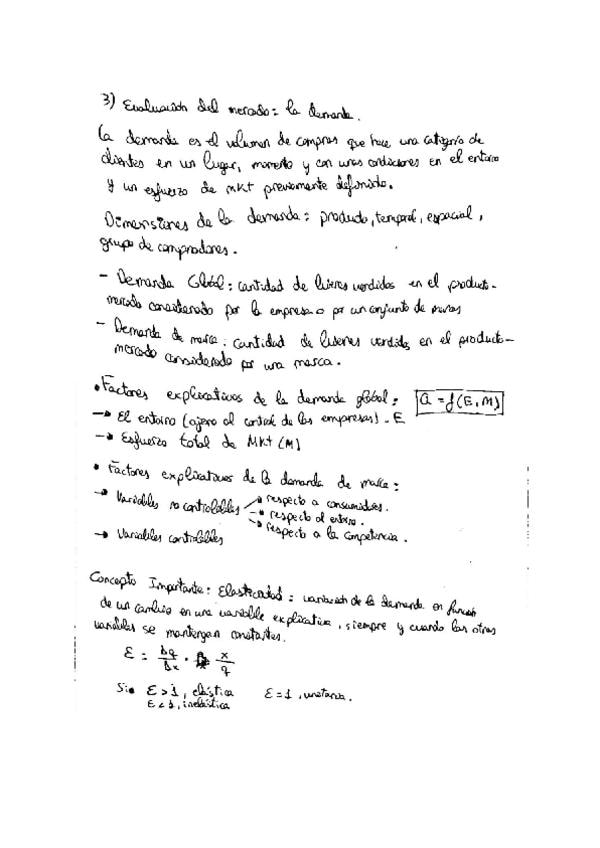 3) Evaluación del mercado: la demanda.
La demanda es el volumen de compras que hace una categoría de
clientes en un lugar, momento y con unas condiciones en el entorno
y un esfuerzo de MKT previamente definido.
Dimensiones de la demanda: producto, temporal, espacial,
grupo de compradores.
- Demanda Global: cantidad de bienes vendidos en el producto-
mercado considerado por la empresa o por un conjunto de marcas
- Demanda de marca: cantidad de bienes vendidos en el producto-
mercado considerado por una marca.
• Factores explicativos de la demanda global: Q = f(E, M)
→ El entorno (ajeno al control de las empresas). E
→ Esfuerzo total de MKT (M)
• Factores explicativos de la demanda de marca:
→ Variables no controlables → respecto a consumidores.
→ respecto al entorno.
→ respecto a la competencia.
→ Variables controlables
Concepto Importante: Elasticidad: variación de la demanda en función
de un cambio en una variable explicativa, siempre y cuando las otras
variables se mantengan constantes.
E = Δq/Δx · x/q
Si E > 1, elástica E = 1, unitaria.
E < 1, inelástica